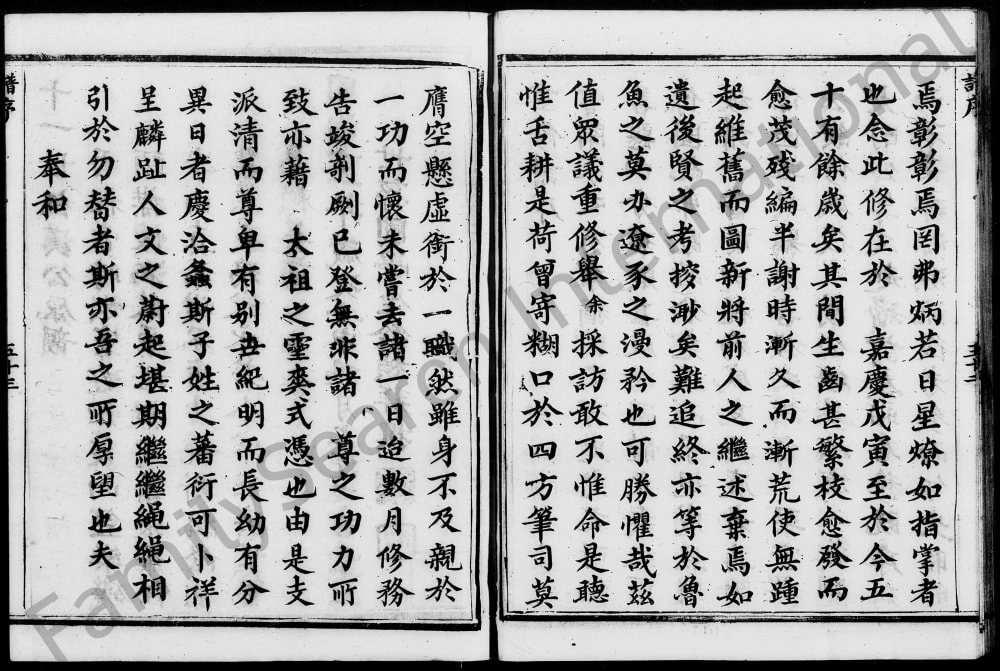 焉彰彰焉罔弗炳若日星燎如指掌者
也念此修在於　嘉慶戊寅至於今五
十有餘歲矣其間生齒甚繁枝愈發而
愈茂殘編半謝時漸久而漸荒使無踵
起維舊而圖新將前人之繼述棄焉如
遺後賢之考挍渺矣難追終亦等於魯
魚之莫办遼豕之漫矜也可勝懼哉茲
值眾議重修舉余採訪敢不惟命是聽
惟舌耕是荷曾寄糊口於四方筆司莫
膺空懸虛銜於一職然雖身不及親於
一功而懷未嘗去諸一日迨數月修務
告竣剞劂已登無非諸　尊之功力所
致亦藉　太祖之靈爽式憑也由是支
派清而尊卑有別丗紀明而長幼有分
異日者慶洽螽斯子姓之蕃衍可卜祥
呈麟趾人文之蔚起堪期繼繼繩繩相
引於勿替者斯亦吾之所厚望也夫
奉和
譜序
五十三
FamilySearch International